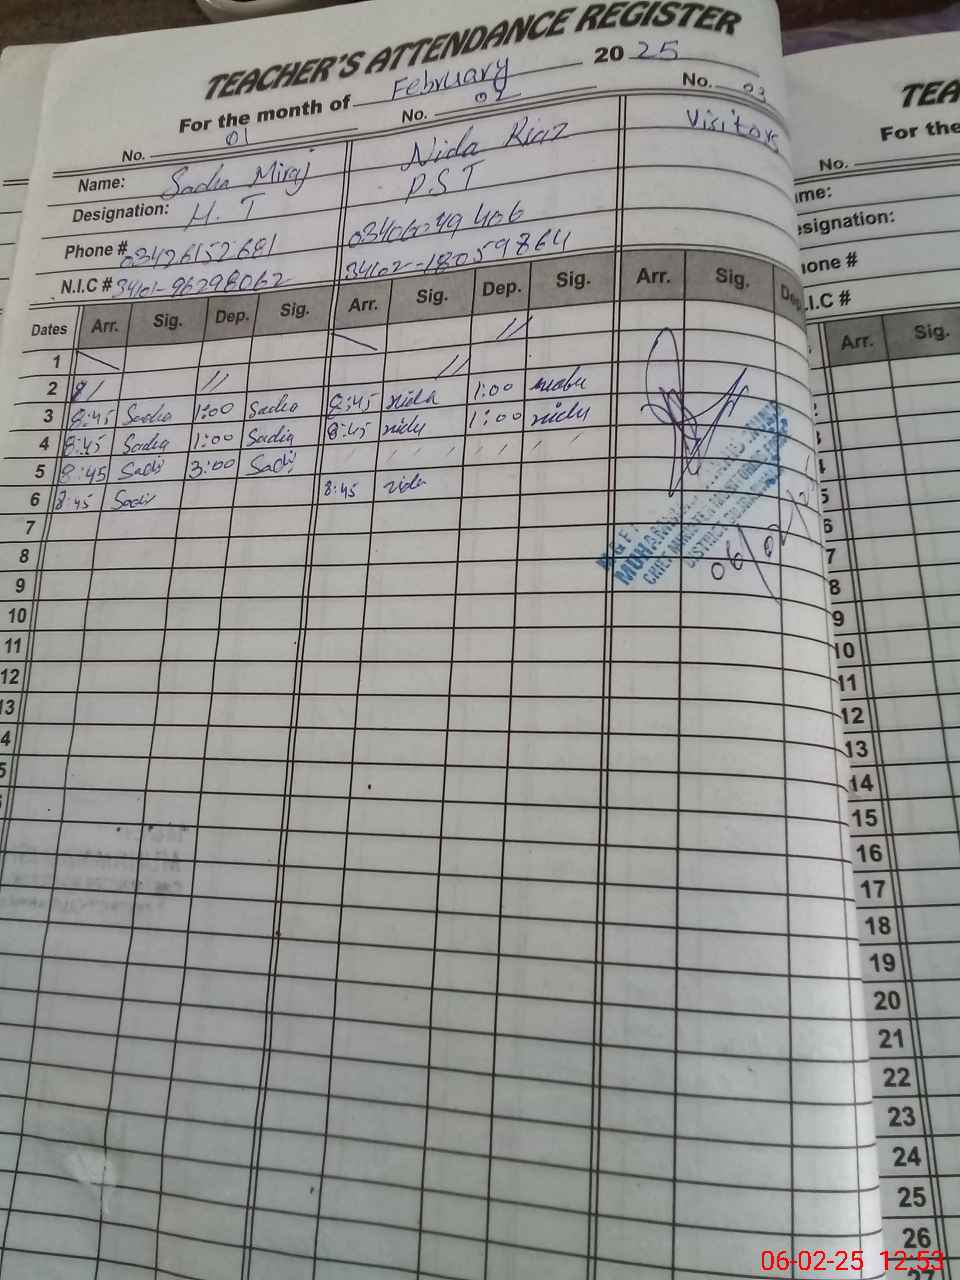 TEACHER'S ATTENDANCE REGISTER
For the month of February 2025
No. 01 No. 02 No. 03
Name: Sadia Miraj Nida Riaz Visitors
Designation: H. T P.S T
Phone # 03426152681 03406049406
N.I.C # 34101-96298062 34102-18059864
Dates Arr. Sig. Dep. Sig. Arr. Sig. Dep. Sig. Arr. Sig. Dep.
1
2
3 8:45 Sadia 1:00 Sadia 8:45 nida 1:00 nida
4 8:45 Sadia 1:00 Sadia 8:45 nida 1:00 nida
5 8:45 Sadi 3:00 Sadi
6 8:45 Sadi 8:45 nida
7
8
9
10
11
12
13
4
5
MUHAMMAD
CHIEF MINISTER MONITORING
DISTRICT
06/02/
TEA
For the
No.
me:
esignation:
hone #
.I.C #
Arr. Sig.
5
6
7
8
9
10
11
12
13
14
15
16
17
18
19
20
21
22
23
24
25
26
27
06-02-25 12:53